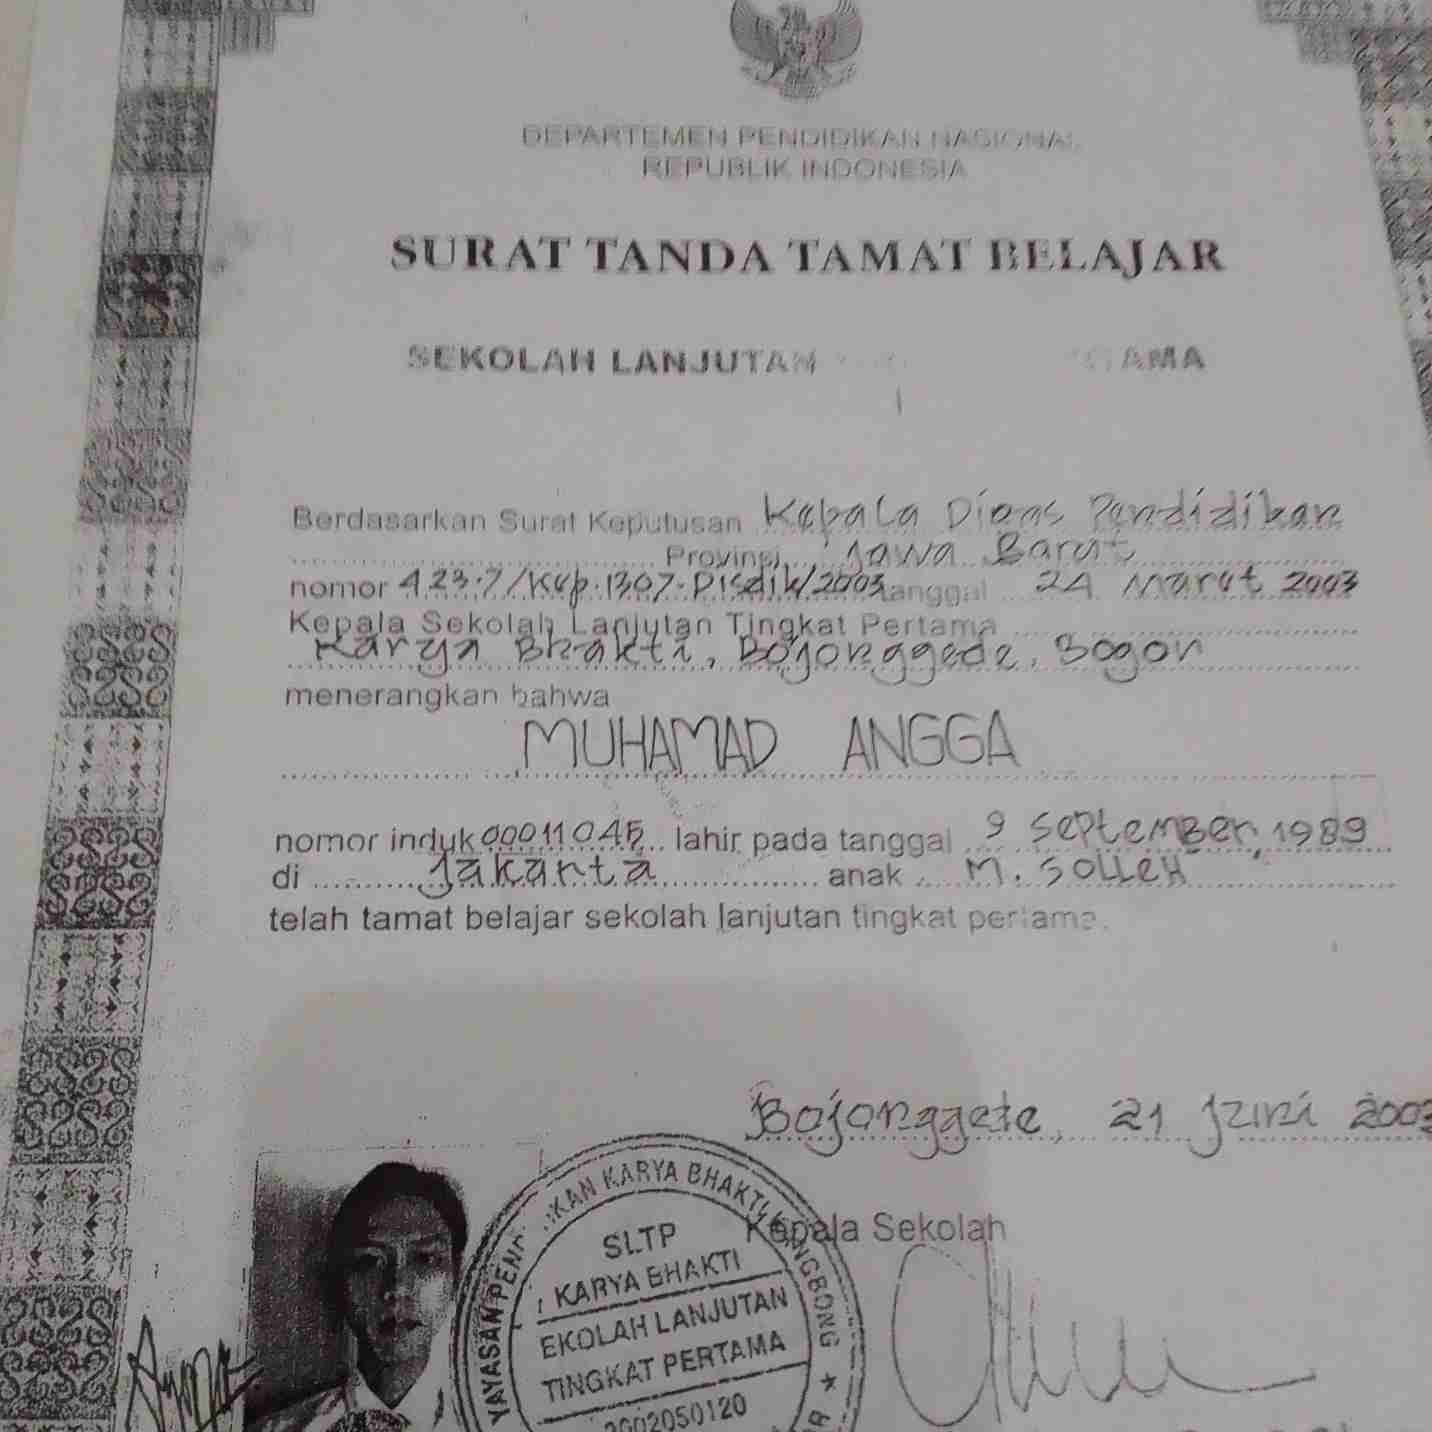 DEPARTEMEN PENDIDIKAN NASIONAL
REPUBLIK INDONESIA
SURAT TANDA TAMAT BELAJAR
SEKOLAH LANJUTAN
Berdasarkan Surat Keputusan Kepala Dinas Pendidikan
Provinsi Jawa Barat
nomor 423.7/Kep.1307-Disdik/2003 tanggal 24 Maret 2003
Kepala Sekolah Lanjutan Tingkat Pertama
Karya Bhakti, Bojonggede, Bogor
menerangkan bahwa
MUHAMAD ANGGA
nomor induk 00011045 lahir pada tanggal 9 September, 1989
di Jakarta anak M. SOLLEH
telah tamat belajar sekolah lanjutan tingkat pertama.
Bojonggede, 21 Juni 2003
Kepala Sekolah
YAYASAN KARYA BHAKTI
SLTP
KARYA BHAKTI
EKOLAH LANJUTAN
TINGKAT PERTAMA
2002050120